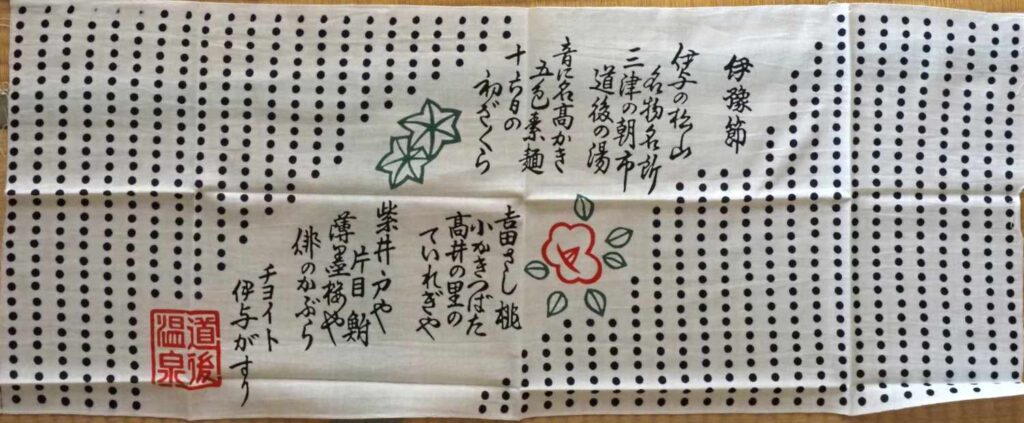 伊豫節
伊与の松山
名物名所
三津の朝市
道後の湯
音に名高かき
五色素麺
十六日の
初ざくら
吉田さし桃
小かきつばた
高井の里の
ていれぎや
紫井戸や
片目鮒
薄墨桜や
緋のかぶら
チヨイト
伊与がすり
道後
温泉